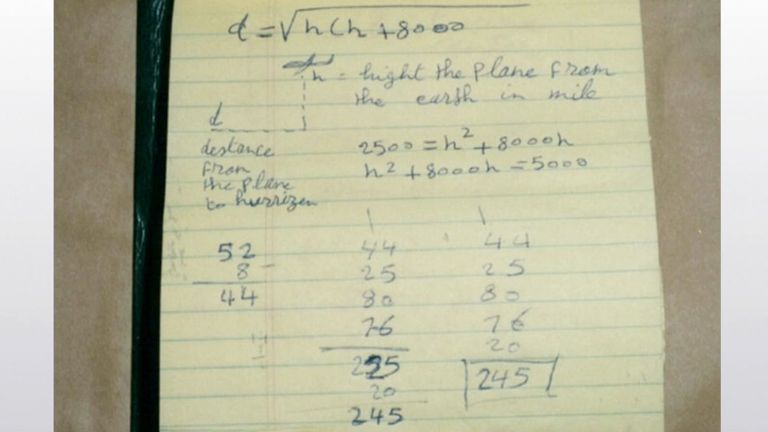 d = √h(h+8000
h = hight the plane from
the earth in mile
d
destance
from
the plane
to hurrizen
2500 = h² + 8000h
h² + 8000h = 5000
52
8
44
1
44
25
80
76
225
20
245
1
44
25
80
76
20
245